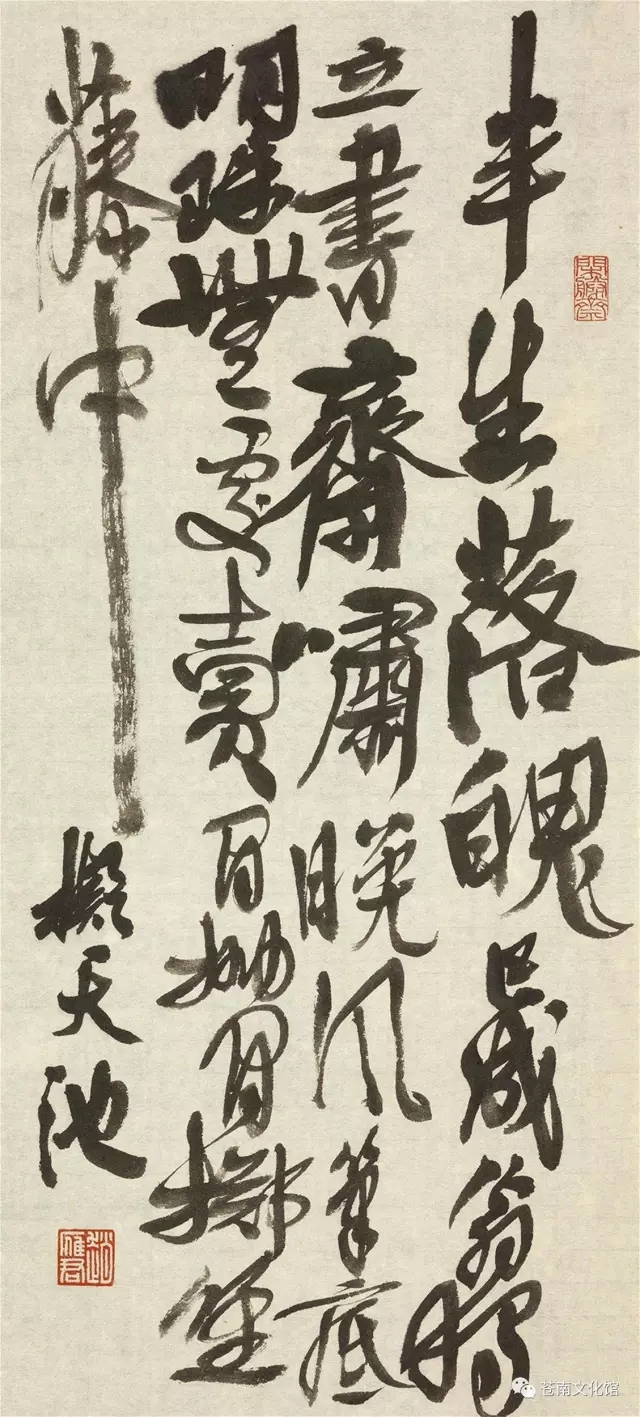 半生落魄已成翁獨
立書齋嘯晚風筆底
明珠無處賣閒拋閒擲野
藤中
擬天池
趙雁君
苍南文化馆